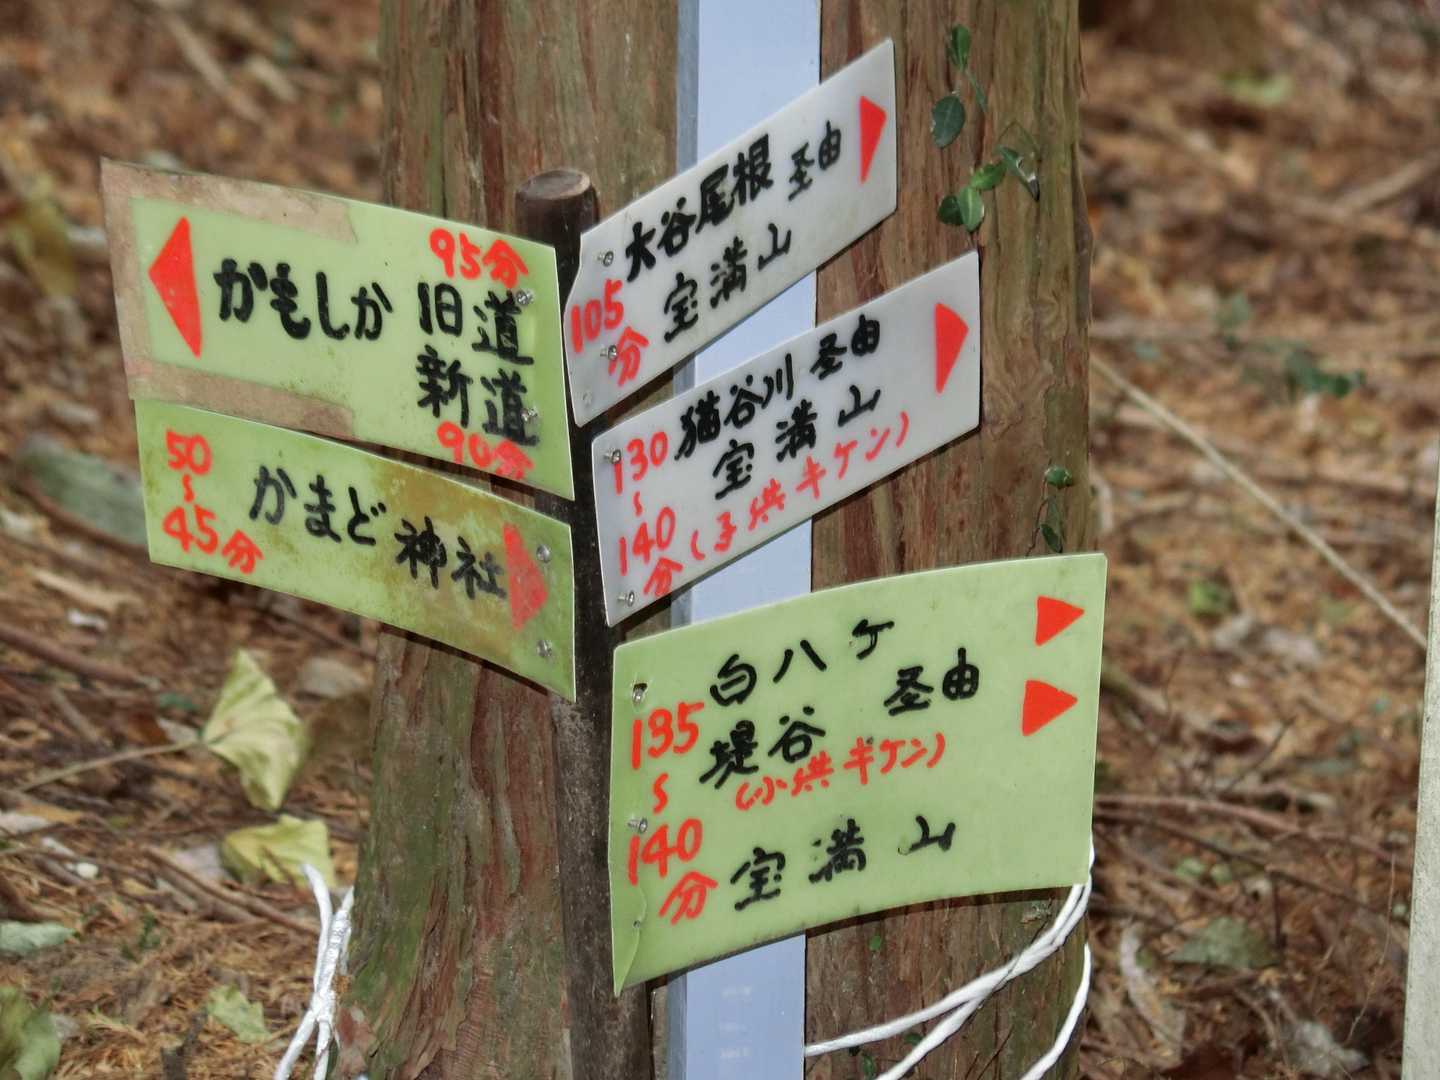 95分
かもしか 旧道
新道
90分
50
〜
45分
かまど神社
大谷尾根 圣由
105分
宝満山
猫谷川 圣由
130
〜
140分
宝満山
(子供キケン)
白八ケ
堤谷 圣由
135
〜
140分
(小供キケン)
宝満山